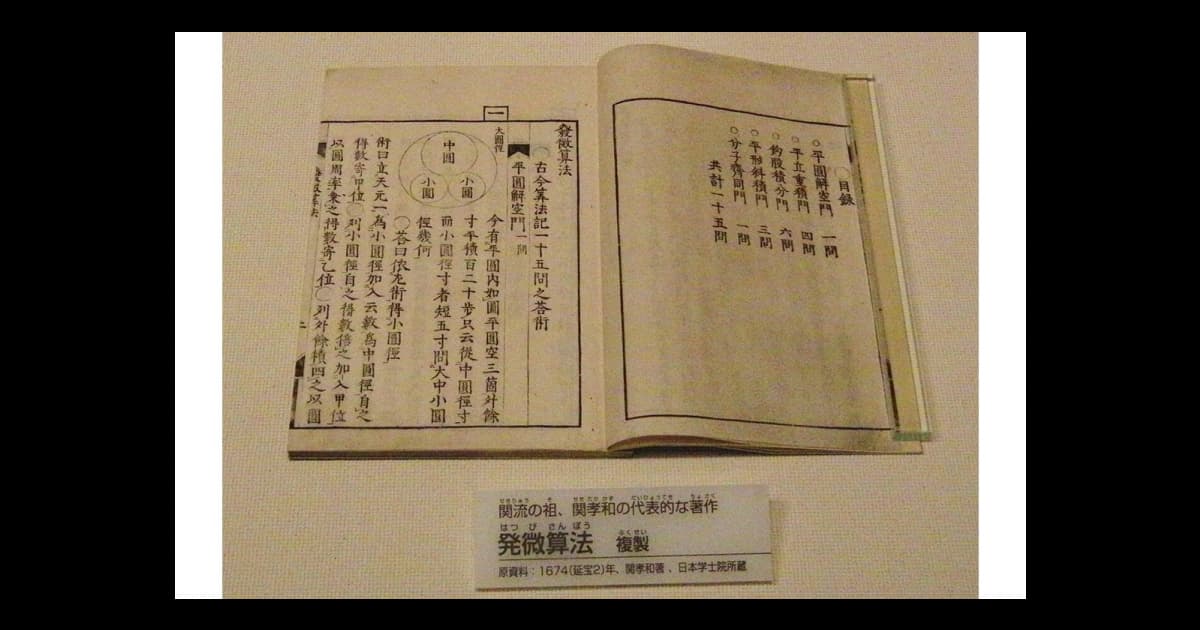 ○目録
○平圓解空門 一問
○平立重積門 四問
○鈎股積分門 六問
○平形斜積門 三問
○分子齊同門 一問
共計一十五問
發微算法
古今算法記一十五問之荅術
平圓解空門 一問
一
大圓徑
中圓
小圓
小圓
今有平圓内如圖平圓空三箇外餘
寸平積百二十歩只云從中圓徑寸
而小圓徑寸者短五寸問大中小圓
徑幾何
○荅曰依左術得小圓徑
術曰立天元一為小圓徑加入云數爲中圓徑自之
得數寄甲位○列小圓徑自之得數倍之加入甲位
以圓周率乗之得數寄乙位○列外餘積四之以圓
關流の祖、関孝和の代表的な著作
せきりゅう そ せき たか かず だいひょうてき ちょ さく
はつ び さん ぽう ふくせい
発微算法 複製
原資料：1674(延宝2)年、関孝和著、日本学士院所蔵